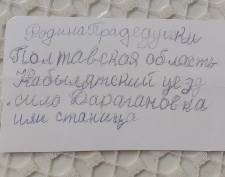 Родина Прадедушки
Полтавская область
Кабылятский уезд
село Барагановка
или станица